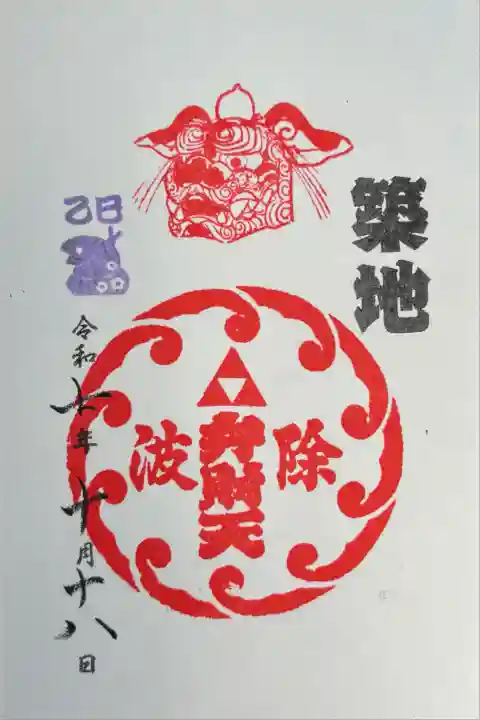 築地
波除
弁財天
乙巳
令和七年十月十八日